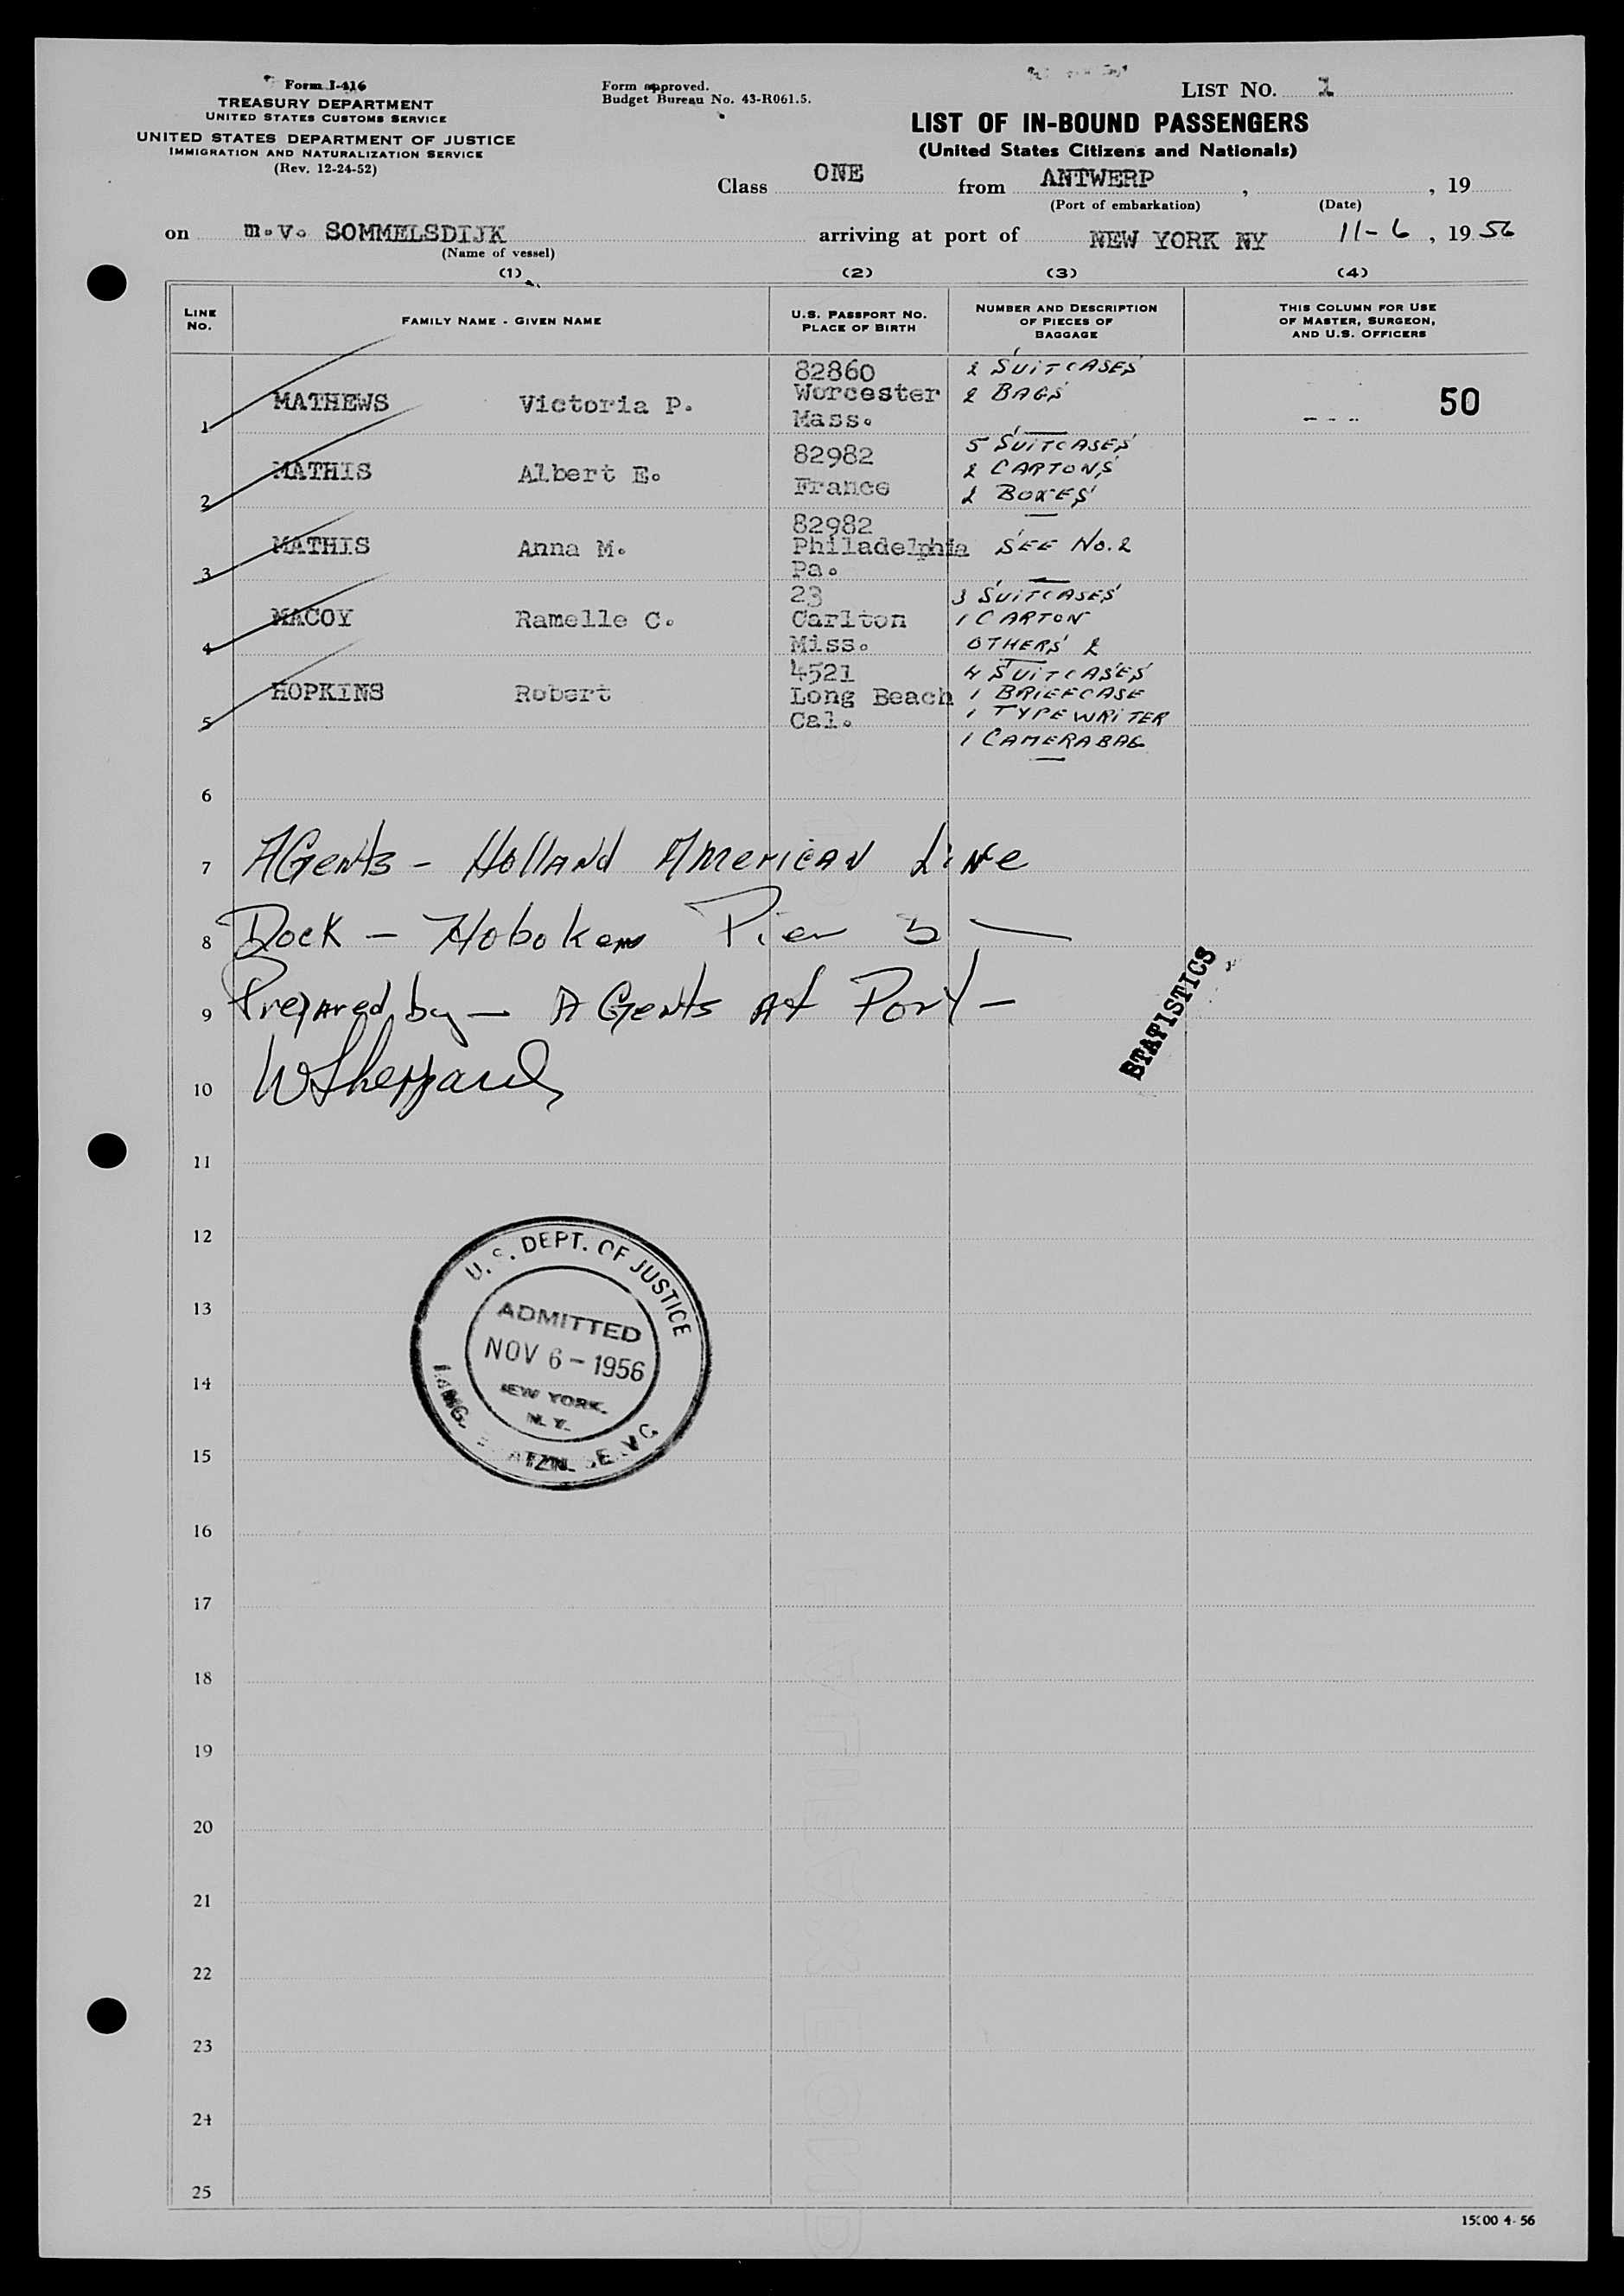 Form I-416
TREASURY DEPARTMENT
UNITED STATES CUSTOMS SERVICE
UNITED STATES DEPARTMENT OF JUSTICE
IMMIGRATION AND NATURALIZATION SERVICE
(Rev. 12-24-52)
Form approved.
Budget Bureau No. 43-R061.5.
LIST NO. 1
LIST OF IN-BOUND PASSENGERS
(United States Citizens and Nationals)
Class ONE from ANTWERP , , 19
(Port of embarkation) (Date)
on m.v. SOMMELSDIJK arriving at port of NEW YORK NY 11-6, 1956
(Name of vessel)
(1) (2) (3) (4)
LINE NO. FAMILY NAME - GIVEN NAME U.S. PASSPORT NO. PLACE OF BIRTH NUMBER AND DESCRIPTION OF PIECES OF BAGGAGE THIS COLUMN FOR USE OF MASTER, SURGEON, AND U.S. OFFICERS
82860 2 SUITCASES
1 MATHEWS Victoria P. Worcester 2 BAGS 50
Mass.
82982 5 SUITCASES
2 MATHIS Albert E. 2 CARTONS
France 2 BOXES
82982
3 MATHIS Anna M. Philadelphia SEE No. 2
Pa.
23 3 SUITCASES
4 MACOY Ramelle C. Carlton 1 CARTON
Miss. OTHERS 2
4521 4 SUITCASES
5 HOPKINS Robert Long Beach 1 BRIEFCASE
Cal. 1 TYPEWRITER
1 CAMERABAG
6
7 AGents - Holland American Line
8 Dock - Hoboken Pier
9 Prepared by - AGents At Port -
10 WSheppard
STATISTICS
11
12
13
14
15
16
17
18
19
20
21
22
23
24
25
U.S. DEPT. OF JUSTICE
ADMITTED
NOV 6 - 1956
NEW YORK.
N.Y.
15:00 4-56